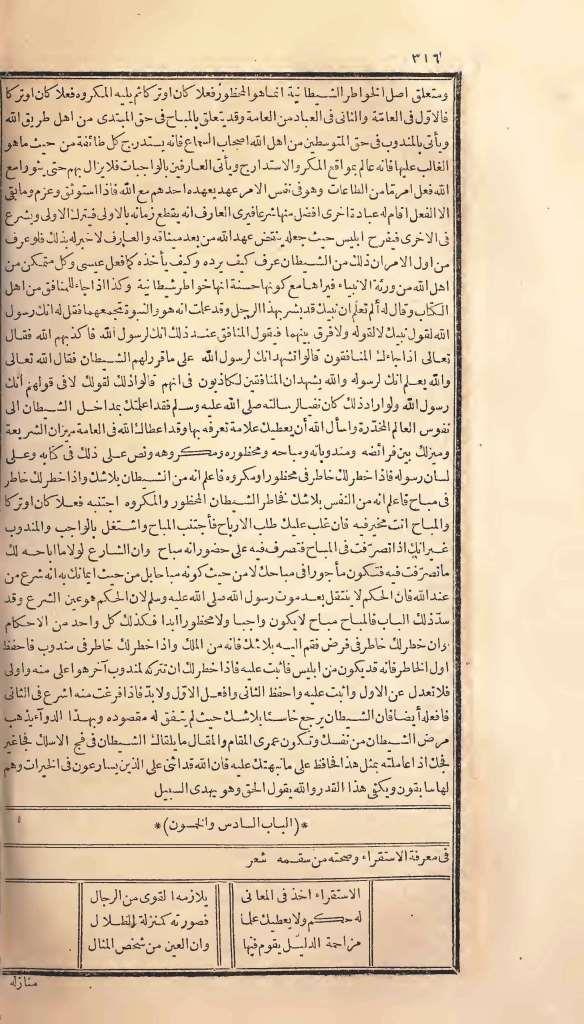 ٣١٦
ومتعلق اصل الخواطر الشيطانية انما هو المحظور فعلا كان أو تركا ثم يليه المكروه فعلا كان أو تركا
فالاول فى العامة والثانى فى العباد من العامة وقد يتعلق بالمباح فى حق المبتدى من اهل طريق الله
ويأتى بالمندوب فى حق المتوسطين من اهل الله اصحاب السماع فانه يستدرج كل طائفة من حيث ما هو
الغالب عليها فانه عالم بمواقع المكر والاستدراج ويأتى العارفين بالواجبات فلا يزال بهم حتى ينووا مع
الله فعل امر مّا من الطاعات وهو فى نفس الامر عهد يعهده احدهم مع الله فاذا استوثق وعزم وما بقى
الا الفعل اقام له عبادة اخرى افضل منها شرعا فيرى العارف انه يقطع زمانه بالاولى فيترك الاولى ويشرع
فى الاخرى فيفرح ابليس حيث جعله ينقض عهد الله من بعد ميثاقه والعارف لا خبر له بذلك فلو عرف
من اول الامر ان ذلك من الشيطان عرف كيف يرده وكيف يأخذه كما فعل عيسى وكل متمكن من
اهل الله من ورثة الانبياء فيراها مع كونها حسنة انها خواطر شيطانية وكذا اذا جاء للمنافق من اهل
الكتاب وقال له ألم تعلم ان نبيك قد بشر بهذا الرجل وقد علمت انه هو والنبوة تجمعهما فقل له انك رسول
الله لقول نبيك لا لقوله ولا فرق بينهما فيقول المنافق عند ذلك انك لرسول الله فاكذبهم الله فقال
تعالى اذا جاءك المنافقون قالوا نشهد انك لرسول الله على ما قرر لهم الشيطان فقال الله تعالى
والله يعلم انك لرسوله والله يشهد ان المنافقين لكاذبون فى انهم قالوا ذلك لقولك لا فى قولهم انك
رسول الله ولو اراد ذلك كان نفيا لرسالته صلى الله عليه وسلم فقد اعلمتك بمداخل الشيطان الى
نفوس العالم لتحذره واسأل الله أن يعطيك علامة تعرفه بها وقد اعطاك الله فى العامة ميزان الشريعة
وميزلك بين فرائضه ومندوباته ومباحه ومحظوره ومكروهه ونص على ذلك فى كتابه وعلى
لسان رسوله فاذا خطر لك خاطر فى محظور او مكروه فاعلم انه من الشيطان بلا شك واذا خطر لك خاطر
فى مباح فاعلم انه من النفس بلا شك فخاطر الشيطان المحظور والمكروه اجتنبه فعلا كان او تركا
والمباح انت مخير فيه فان غلب عليك طلب الارباح فاجتنب المباح واشتغل بالواجب والمندوب
غير انك اذا تصرّفت فى المباح فتصرف فيه على حضور انه مباح وان الشارع لولا ما اباحه لك
ما تصرّفت فيه فتكون مأجورا فى مباحك لا من حيث كونه مباحا بل من حيث ايمانك به انه شرع من
عند الله فان الحكم لا ينتقل بعد موت رسول الله صلى الله عليه وسلم لان الحكم هو عين الشرع وقد
سدّ ذلك الباب فالمباح مباح لا يكون واجبا ولا محظورا ابدا فكذلك كل واحد من الاحكام
وان خطر لك خاطر فى فرض فقم اليه بلا شك فانه من الملك واذا خطر لك خاطر فى مندوب فاحفظ
اول الخاطر فانه قد يكون من ابليس فاثبت عليه فاذا خطر لك ان تتركه لمندوب آخر هو اعلى منه واولى
فلا تعدل عن الاول واثبت عليه واحفظ الثانى وافعل الاوّل ولا بدّ فاذا فرغت منه اشرع فى الثانى
فافعله أيضا فان الشيطان يرجع خاسئا بلا شك حيث لم يتفق له مقصوده وبهذا الدواء يذهب
مرض الشيطان من نفسك وتكون عمرى المقام والمقال ما يلقاك الشيطان فى فج الا سلك فجا غير
فجك اذا عاملته بمثل هذا فحافظ على ما نبهتك عليه فان الله قد اثنى على الذين يسارعون فى الخيرات وهم
لها سابقون ويكفى هذا القدر والله يقول الحق وهو يهدى السبيل
*(الباب السادس والخمسون)*
فى معرفة الاستقراء وصحته من سقمه شعر
الاستقراء اخذ فى المعانى يلازمه القوى من الرجال
له حكم ولا يعطيك علما فصورته كمنزلة الظلال
مزاحمة الدليل يقوم فيها وان العين من شخص المثال
منازله